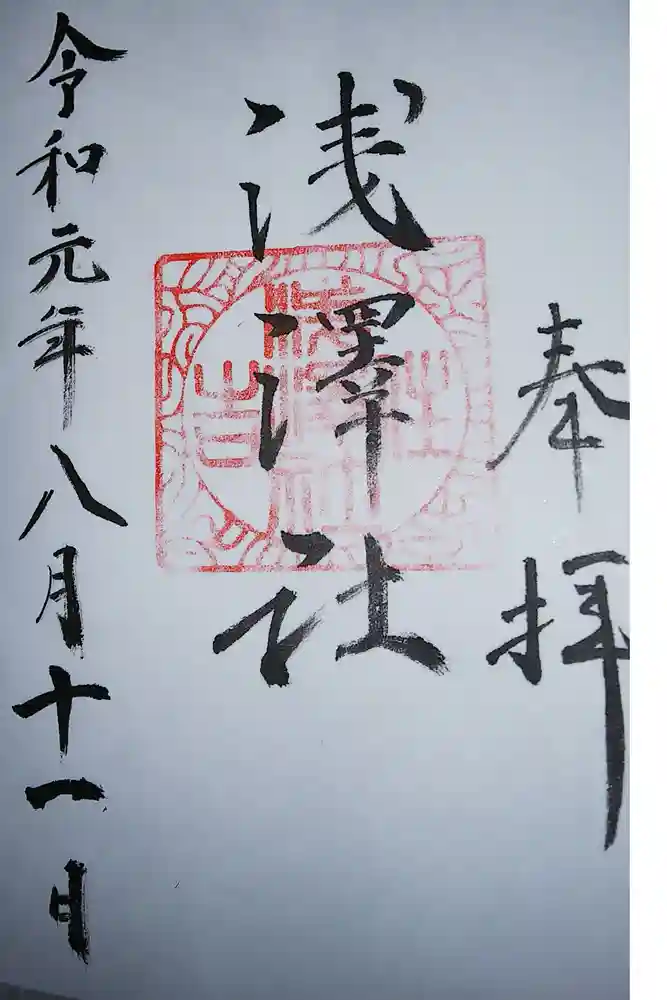 奉拝
浅澤社
令和元年八月十一日